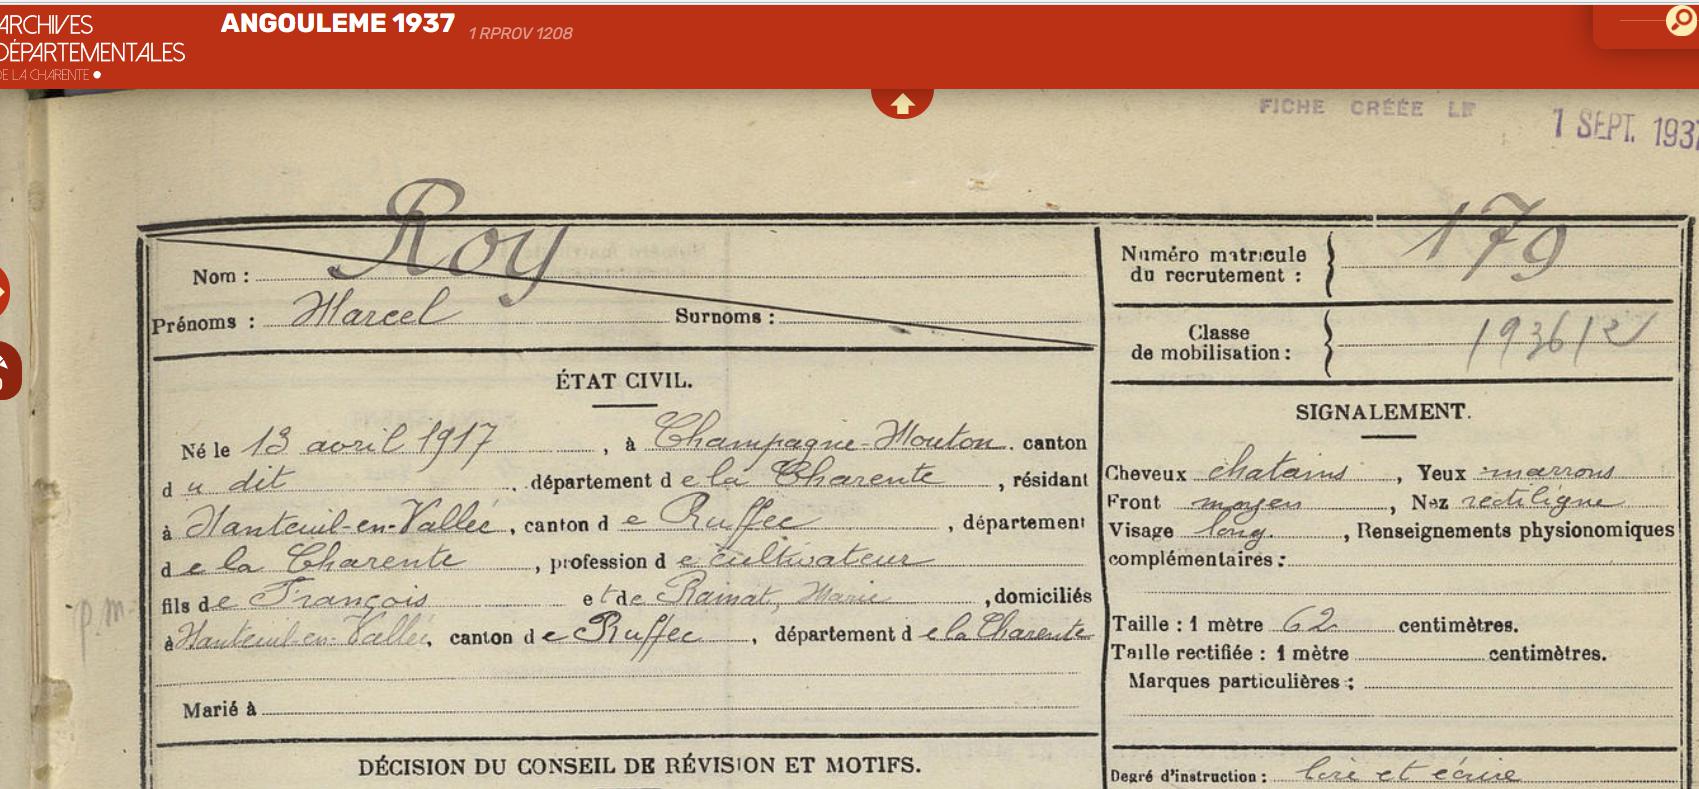 ARCHIVES
DÉPARTEMENTALES
DE LA CHARENTE
ANGOULEME 1937 1 RPROV 1208
FICHE CRÉÉE LE 1 SEPT. 1937
Nom : Roy
Prénoms : Marcel Surnoms :
Numéro matricule
du recrutement : 179
Classe
de mobilisation : 1936/2
ÉTAT CIVIL.
Né le 13 avril 1917, à Champagne-Mouton. canton
du dit, département de la Charente, résidant
à Nanteuil-en-Vallée, canton de Ruffec, département
de la Charente, profession de cultivateur
fils de François et de Rainat, Marie, domiciliés
p.m. à Nanteuil-en-Vallée, canton de Ruffec, département de la Charente
Marié à
DÉCISION DU CONSEIL DE RÉVISION ET MOTIFS.
SIGNALEMENT.
Cheveux chatains, Yeux marrons
Front moyen, Nez rectiligne
Visage long., Renseignements physionomiques
complémentaires :
Taille : 1 mètre 62 centimètres.
Taille rectifiée : 1 mètre centimètres.
Marques particulières :
Degré d'instruction : lire et écrire